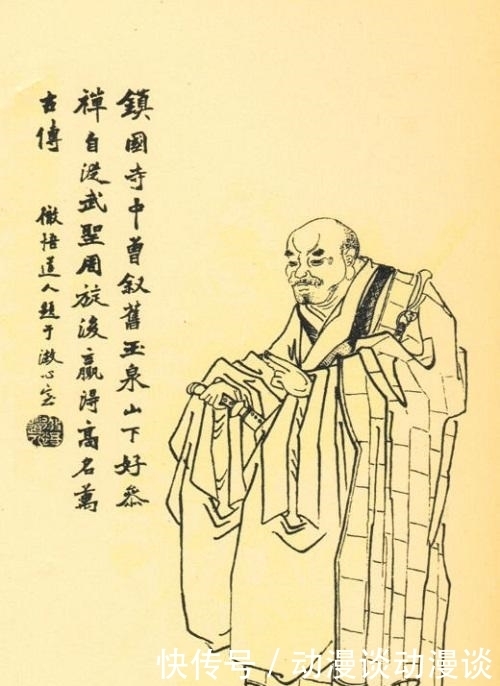 鎮國寺中曾叙舊玉泉山下好參
禅自從武聖周旋後贏得高名萬
古傳
徹悟道人題于澂心室
快传号/动漫谈动漫谈